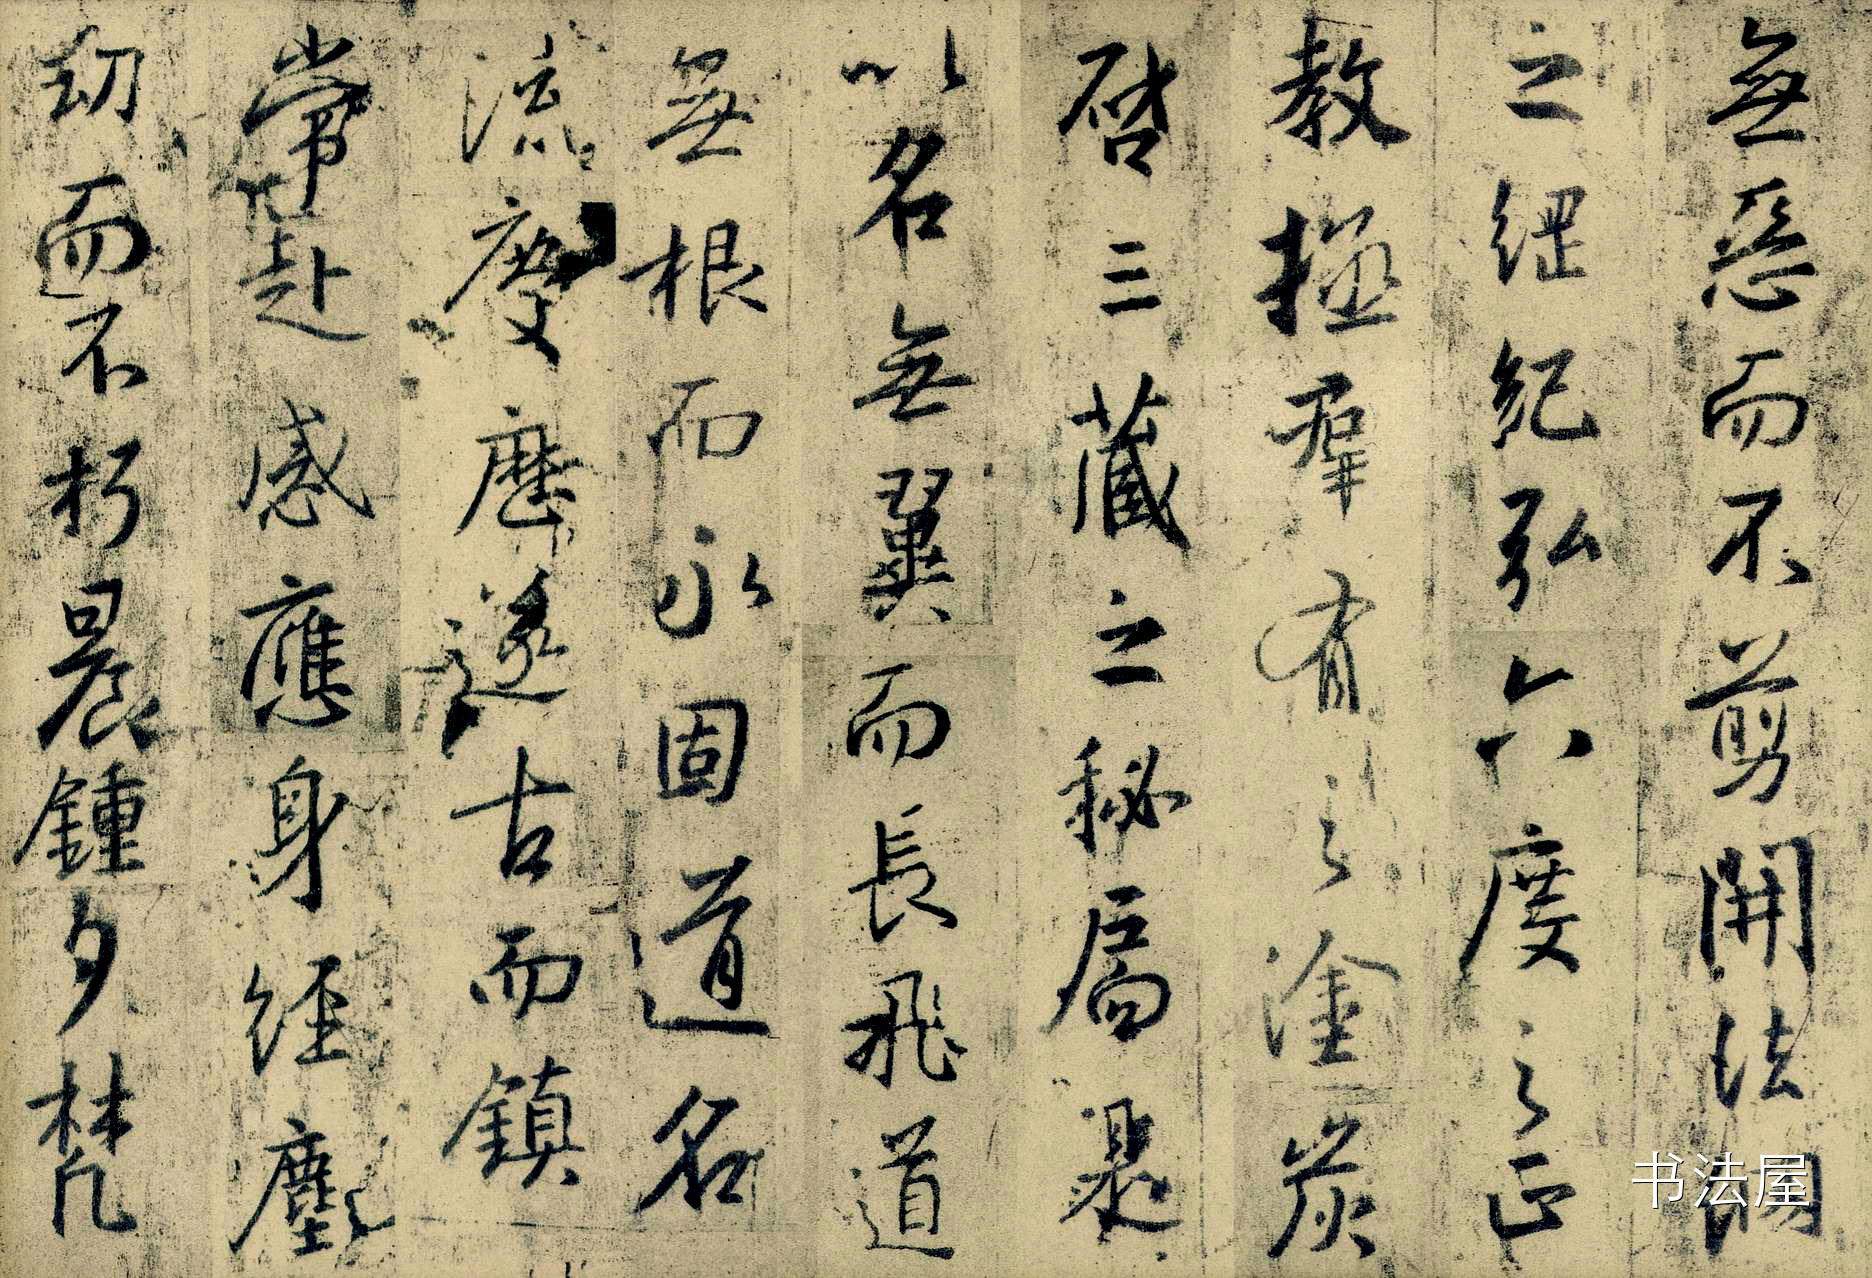 無惡而不剪開法網
之綱紀弘六度之正
教拯群有之塗炭
啓三藏之秘扃是
以名無翼而長飛道
無根而永固道名
流慶歷遂古而鎮
常赴感應身經塵
劫而不朽晨鍾夕梵
书法屋